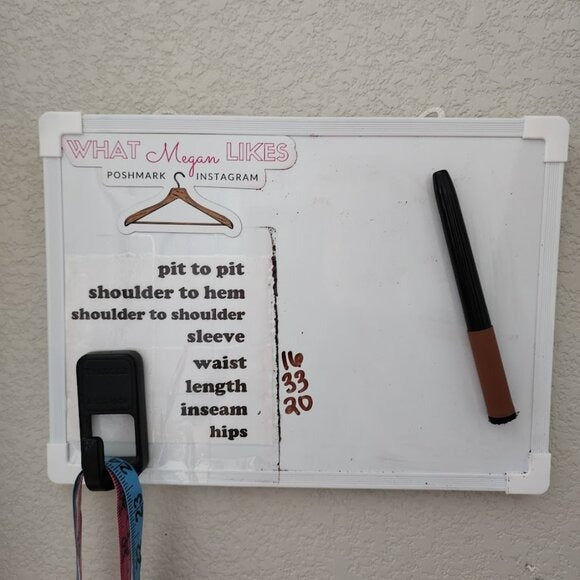 WHAT Megan LIKES
POSHMARK INSTAGRAM
pit to pit
shoulder to hem
shoulder to shoulder
sleeve
waist 16
length 33
inseam 20
hips